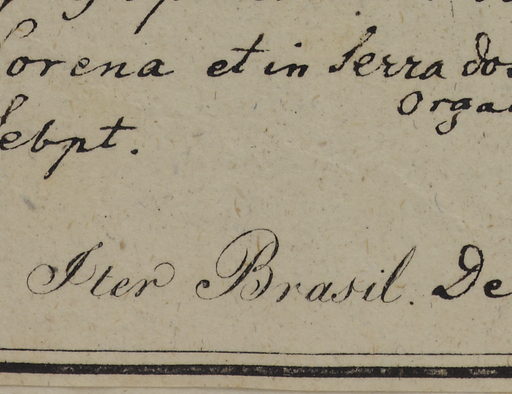 Lorena et in Serra dos
Orga
Sebpt.
Iter Brasil. De